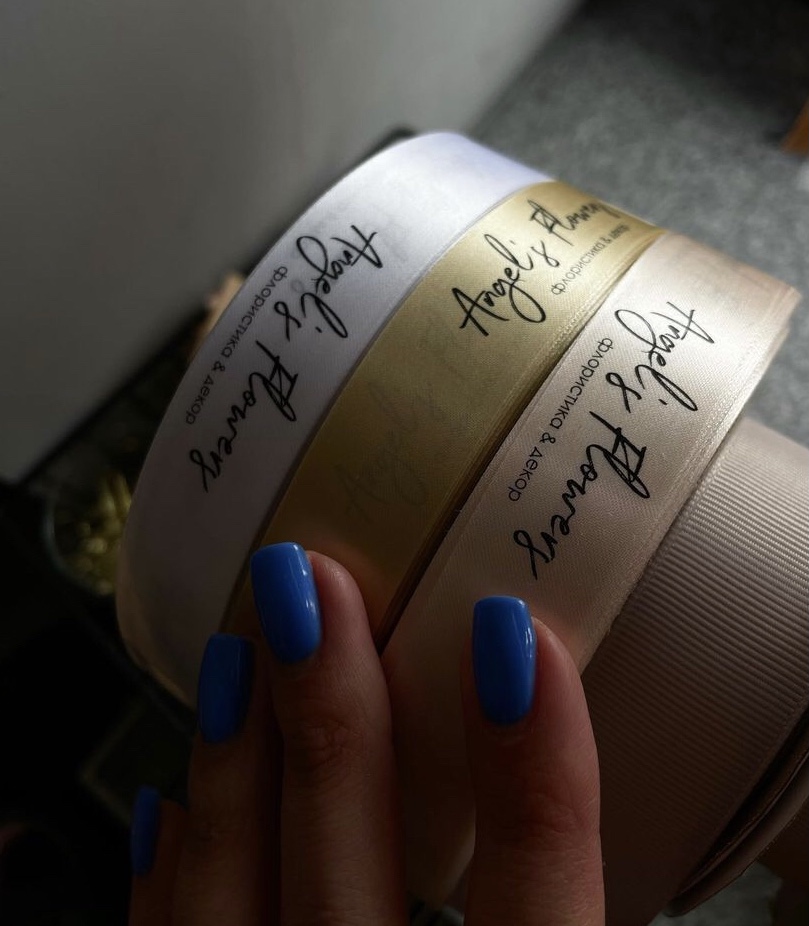 Angel's Flowers
флористика & декор
Angel's Flowers
флористика & декор
Angel's Flowers
флористика & декор